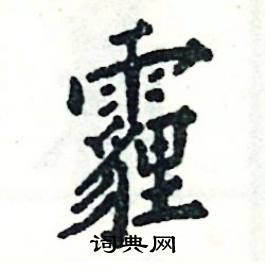 霾
词典网